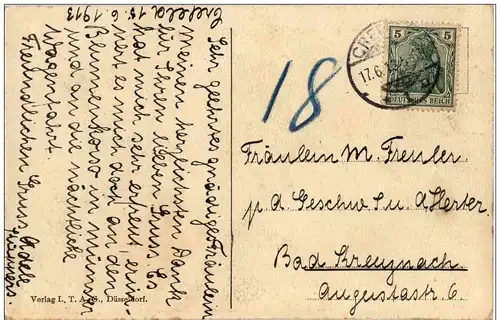 Crefeld 15.6.1913
Sehr geehrtes gnädiges Fräulein
Meinen herzlichsten Dank
für Ihren lieben Gruss. Es
hat mich sehr erfreut, erin-
nert es mich doch an den
Blumenkorso in münster
und an die nächtliche
Wagenfahrt.
Freundlichen Gruss Adele
18
CREFELD
17.6.13
5 5
DEUTSCHES REICH
Fräulein M. Freuler
p. a Geschw S. u. A Herter
Bad Kreuznach
Augustastr 6.
Verlag L. T. A. G., Düsseldorf.